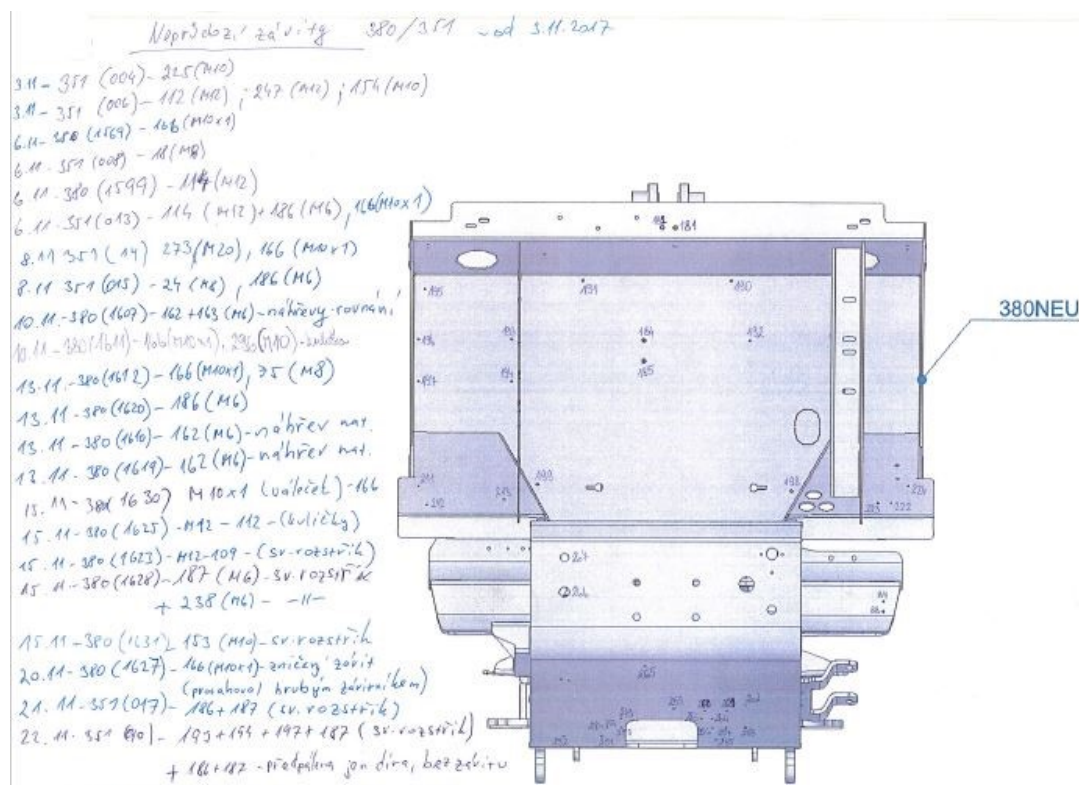 Neprůchozí závity 380/351 - od 3.11.2017
3.11 - 351 (004) - 225 (M10)
3.11 - 351 (006) - 112 (M12) ; 247 (M12) ; 154 (M10)
6.11 - 380 (1569) - 166 (M10x1)
6.11 - 351 (008) - 18 (M8)
6.11 - 380 (1599) - 114 (M12)
6.11 - 351 (013) - 114 (M12) + 186 (M6), 166 (M10x1)
8.11 351 (14) 273 (M20), 166 (M10x1)
8.11 351 (015) - 24 (M8), 186 (M6)
10.11. - 380 (1607) - 162 + 163 (M6) - náhřevy - rovnání
10.11 - 380 (1611) - 166 (M10x1), 296 (M10)
13.11. - 380 (1612) - 166 (M10x1), 75 (M8)
13.11 - 380 (1620) - 186 (M6)
13.11 - 380 (1610) - 162 (M6) - náhřev nat.
13.11 - 380 (1619) - 162 (M6) - náhřev nat.
15.11 - 380 1630) M10x1 (váleček) - 166
15.11 - 380 (1625) - M12 - 112 - (kuličky)
15.11 - 380 (1623) - M12 - 109 - (sv. rozstřik)
15.11 - 380 (1628) - 187 (M6) - sv. rozstřik
+ 238 (M6) - -11-
15.11 - 380 (1631) - 153 (M10) - sv. rozstřik
20.11 - 380 (1627) - 166 (M10x1) - zničený závit
(prosahoval hrubým závitníkem)
21.11 - 351 (017) - 186 + 187 (sv. rozstřik)
22.11 - 351 - 193 + 194 + 197 + 187 (sv. rozstřik)
+ 186 + 187 - předpálena jen díra, bez závitu
380NEU
181
195
191
190
196
193
184
192
185
197
194
211
199
198
221
212
213
223
222
247